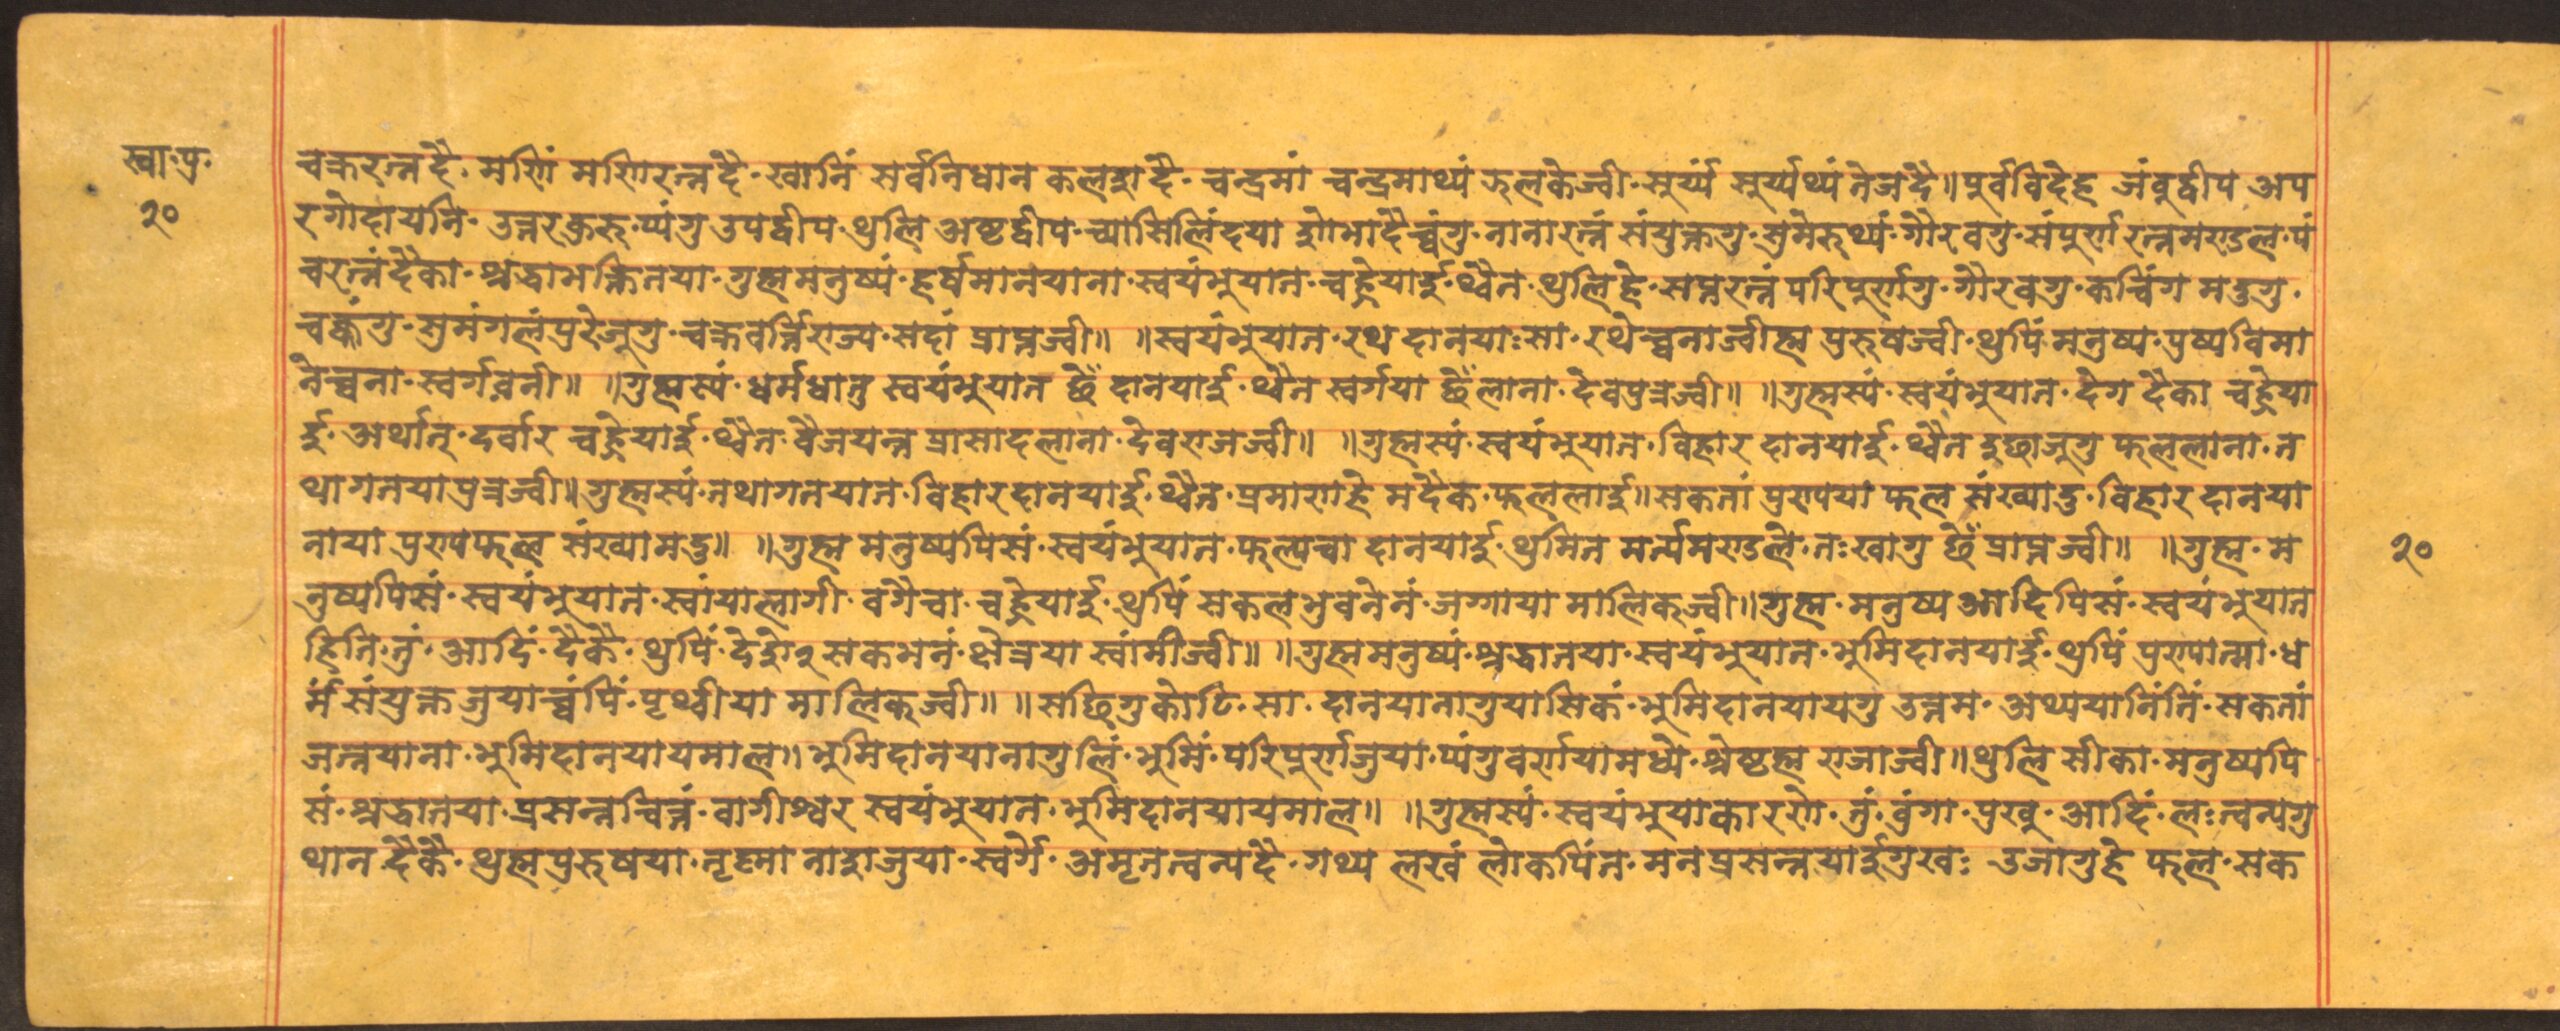 स्वा॰पु॰
२०
चक्ररत्नदै॰ मणिं मणिरत्नदै॰ खानिं सर्वनिधान कलशदै॰ चन्द्रमां चन्द्रमाथ्यं झलकेज्वी॰ सुर्य्यं सुर्य्यथ्यं तेजदै॥ पुर्वविदेह जंवुद्वीप अप
रगोदायनि॰ उत्तरकुरु॰ प्यंगु उपद्वीप॰ थुलि अष्टद्वीप॰ च्यासिलिंदया शोभादैच्वंगु॰ नानारत्नं संयुक्तगु॰ सुमेरुथ्यं॰ गौरवगु॰ संपुर्ण रत्नमण्डल॰ पं
चरत्नंदैका॰ श्रद्धाभक्तितया॰ गुह्ममनुष्यं॰ हर्षमानयाना॰ स्वयंभुयात॰ च्वह्रेयाई॰ थ्वैत॰ थुलिहे॰ सप्तरत्नं परिपुर्णगु॰ गौरवगु॰ कच्विंग मदुगु॰
चक्कंगु॰ सुमंगलं पुरेजूगु॰ चक्रवर्त्तिराज्य॰ सदां प्राप्तज्वी॥ ॥स्वयंभुयात॰ रथ दानयाःसा॰ रथेच्वनाज्वीह्म पुरुषज्वी॰ थुपिं मनुष्य॰ पुष्पविमा
नेच्वना॰ स्वर्गवनी॥ ॥गुह्मस्यं॰ धर्मधातु स्वयंभुयात छेँ दानयाई॰ थ्वैत स्वर्गया छेँ लाना॰ देवपुत्रज्वी॥ ॥गुह्मस्यं॰ स्वयंभुयात॰ देग दैका चह्रेया
ई॰ अर्थात् दर्वार च्वह्रेयाई॰ थ्वैत वैजयन्त प्रासाद लाना॰ देवराजज्वी॥ ॥गुह्मस्यं॰ स्वयंभुयात॰ विहार दानयाई॰ थ्वैत इछाजुगु फल लाना॰ त
थागतया पुत्रज्वी॥ गुह्मस्यं॰ तथागतयात॰ विहारदानयाई॰ थ्वैत॰ प्रमाणहे मदैक॰ फललाई॥ सकतां पुण्यया फल संख्यादु॰ विहार दानया
नाया पुण्यफल संख्यामदु॥ ॥गुह्म मनुष्यपिसं॰ स्वयंभुयात॰ फल्पचा दानयाई॰ थुमित मर्त्यमण्डले॰ तःखागु छेँ प्राप्तज्वी॥ ॥गुह्म॰ म
नुष्यपिसं॰ स्वयंभुयात॰ स्वांयालागी॰ वगैचा॰ चह्रेयाई॰ थुपिं सकल भुवनेनं॰ जग्गाया मालिकज्वी॥ गुह्म॰ मनुष्य आदिपिसं॰ स्वयंभुयात
हिति॰ तुं॰ आदिं॰ दैकै॰ थुपिं॰ देशे२ सकभनं॰ क्षेत्रया स्वांमीज्वी॥ ॥गुह्ममनुष्यं॰ श्रद्धानया॰ स्वयंभुयात॰ भुमिदानयाई॰ थुपिं पुण्यात्मा॰ ध
र्म्मं संयुक्त जुयाच्वंपिं॰ पृथ्वीया मालिकज्वी॥ ॥सछिगुकोटि॰ सा॰ दानयानागुयासिकं॰ भुमिदानयायगु उत्तम॰ अथ्ययानिंतिं॰ सकतां
जत्नयाना॰ भुमिदानयायमाल॥ भुमिदानयानागुलिं॰ भुमिं॰ परिपुर्णजुया॰ प्यंगुवर्णयामध्ये॰ श्रेष्टह्म राजाज्वी॥ थुलि सीका॰ मनुष्यपि
सं॰ श्रद्धातया॰ प्रसन्नचित्तं॰ वागीश्वर स्वयंभुयात॰ भुमिदानयायमाल॥ ॥गुह्मस्यं॰ स्वयंभुयाकारणे॰ तुं॰ वुंगा॰ पुखु॰ आदिं॰ लःत्वन्यगु
थान दैकै॰ थुह्मपुरुषया॰ तृष्णा नाशजुया॰ स्वर्गे॰ अमृतत्वन्यदै॰ गथ्य लखं लोकपिंत॰ मन प्रसन्नयाईगुखः उजागुहे फल॰ सक
२०